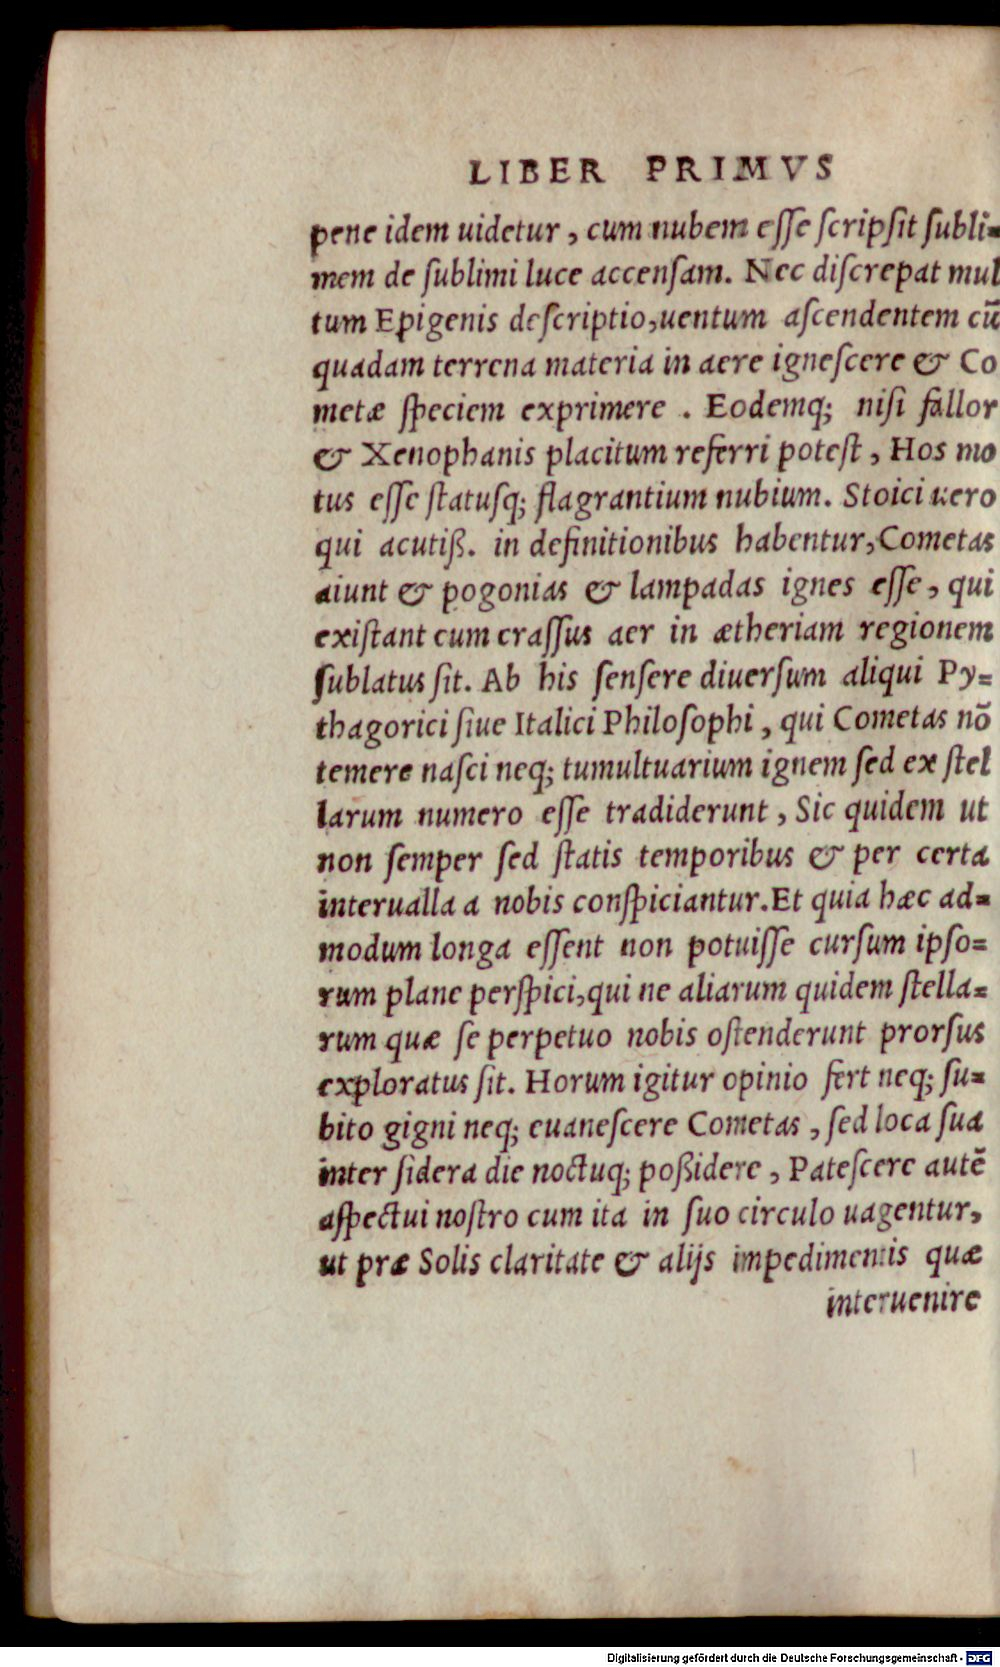 LIBER PRIMVS
pene idem uidetur, cum nubem esse scripsit subli-
mem de sublimi luce accensam. Nec discrepat mul
tum Epigenis descriptio, uentum ascendentem cū
quadam terrena materia in aere ignescere & Co
metæ speciem exprimere. Eodemq; nisi fallor
& Xenophanis placitum referri potest, Hos mo
tus esse statusq; flagrantium nubium. Stoici uero
qui acutiß. in definitionibus habentur, Cometas
aiunt & pogonias & lampadas ignes esse, qui
existant cum crassus aer in ætheriam regionem
sublatus sit. Ab his sensere diuersum aliqui Py-
thagorici siue Italici Philosophi, qui Cometas nō
temere nasci neq; tumultuarium ignem sed ex stel
larum numero esse tradiderunt, Sic quidem ut
non semper sed statis temporibus & per certa
interualla a nobis conspiciantur. Et quia hæc ad-
modum longa essent non potuisse cursum ipso-
rum plane perspici, qui ne aliarum quidem stella-
rum quæ se perpetuo nobis ostenderunt prorsus
exploratus sit. Horum igitur opinio fert neq; su-
bito gigni neq; euanescere Cometas, sed loca sua
inter sidera die noctuq; poßidere, Patescere autē
aspectui nostro cum ita in suo circulo uagentur,
ut præ Solis claritate & alijs impedimentis quæ
interuenire
Digitalisierung gefördert durch die Deutsche Forschungsgemeinschaft - DFG